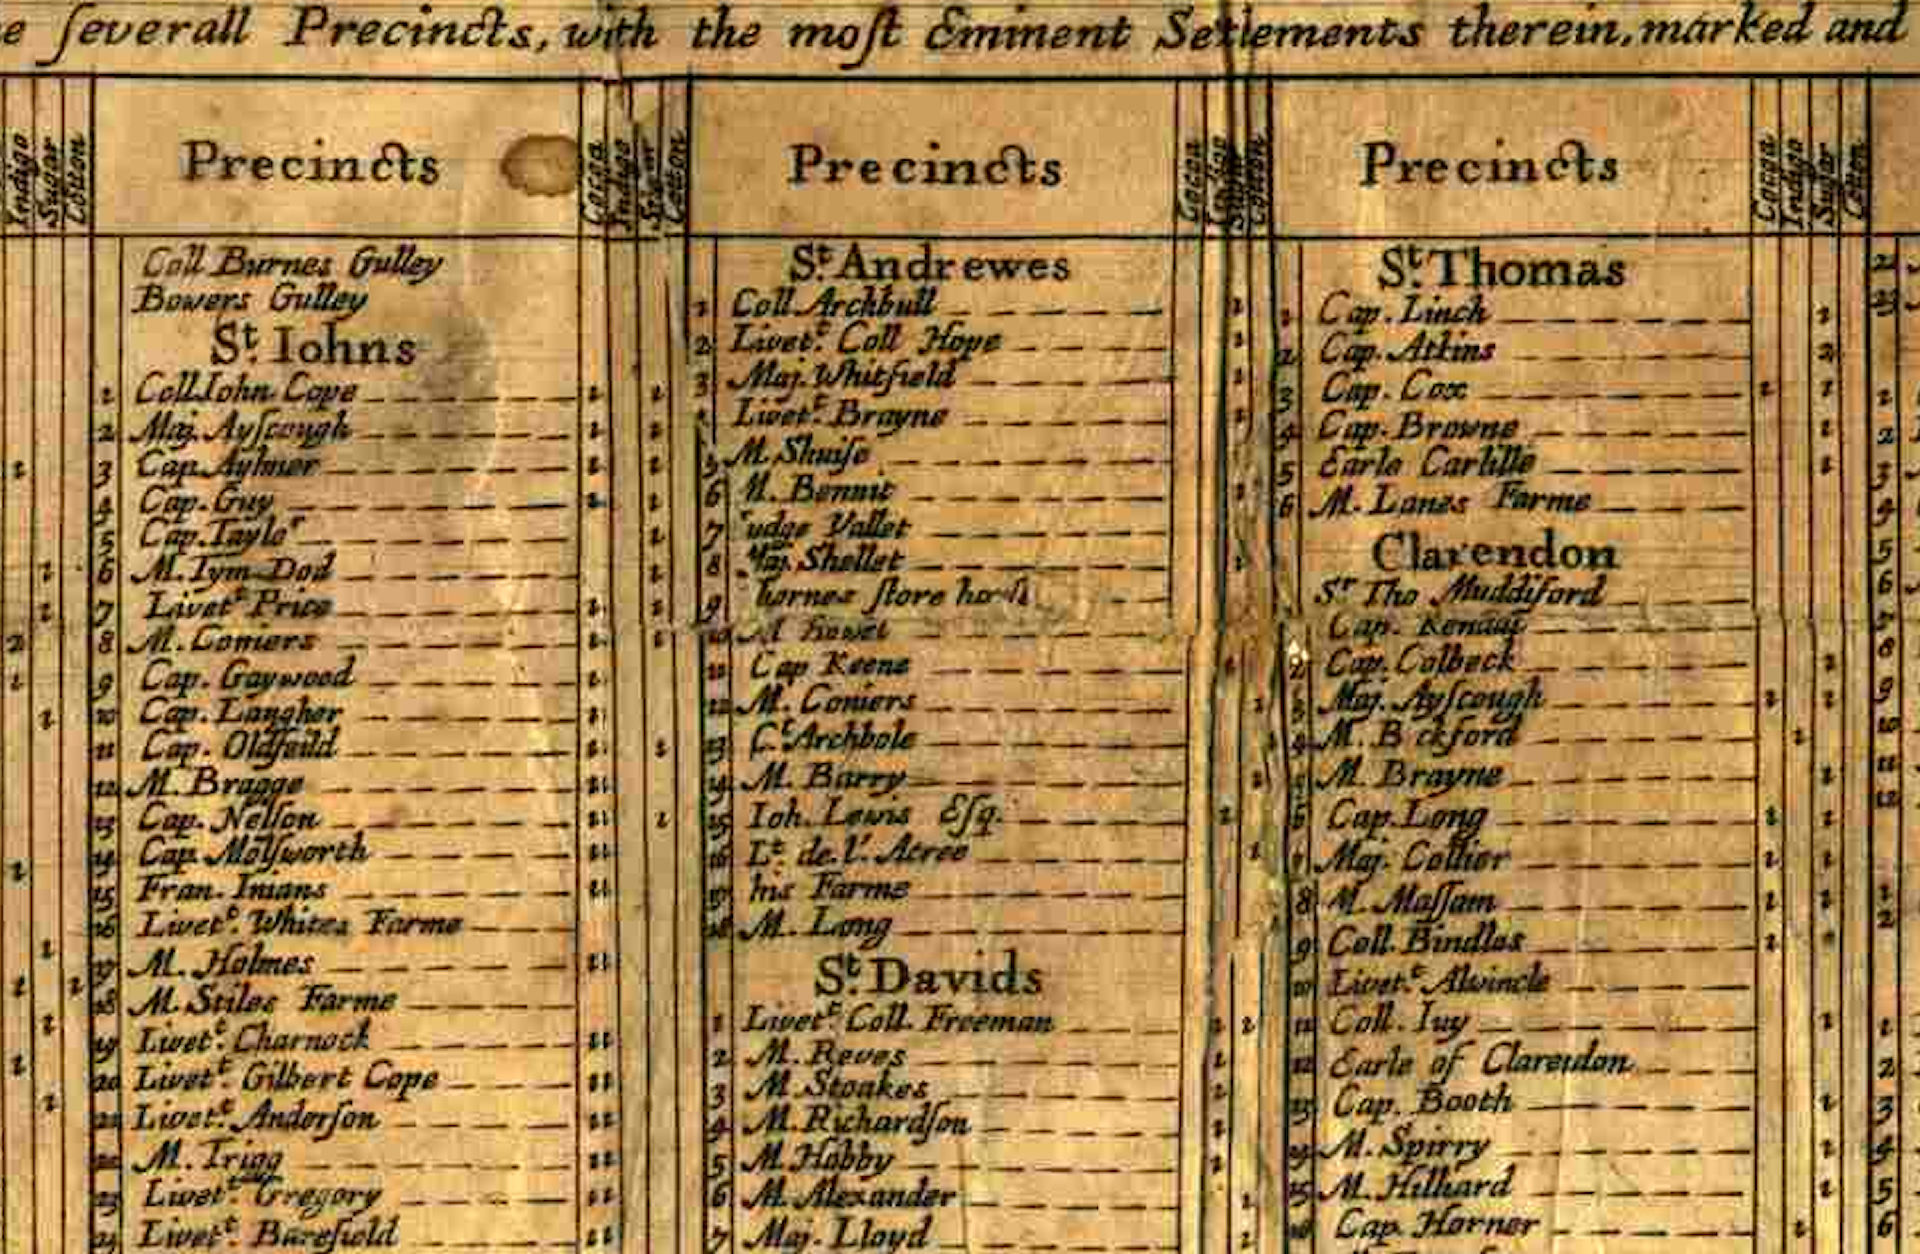 e severall Precincts, with the most Eminent Settlements therein, marked and
Indigo
Sugar
Cotton
Precincts
Cocoa
Indigo
Sugar
Cotton
Coll Burnes Gulley
Bowers Gulley
St. Iohns
1 Coll Iohn Cope 1 1
2 Maj. Ayscough 1 1
3 Cap. Aylmer 1 1
4 Cap. Guy 1 1
5 Cap. Taylor 1
6 M. Tym Dod 1
7 Livet. Price 1 1
8 M. Coniers 1 1
9 Cap. Gaywood
10 Cap. Langher
11 Cap. Oldfeild 1
12 M. Bragge
13 Cap. Nelson 1
14 Cap. Molsworth
15 Fran. Inians
16 Livet. Whites Farme
17 M. Holmes
18 M. Stiles Farme
19 Livet. Charnock
20 Livet. Gilbert Cope
21 Livet. Anderson
22 M. Trigg
23 Livet. Gregory
24 Livet. Barefield
Precincts
Cocoa
Indigo
Sugar
Cotton
St. Andrewes
1 Coll. Archbull 1
2 Livet. Coll Hope 1
3 Maj. Whitfield 1
Livet. Brayne 1
5 M. Shuise
6 M. Bennit 1
7 udge Vallet
8 Maj. Shellet 1
9 hornes store
10 M
11 Cap Keene 1
12 M. Coniers 1
13 Archbole
14 M. Barry 1
15 Ioh. Lewis Esq. 1
16 Lt. de. l'. Acree 1
17 his Farme
18 M. Long
St. Davids
1 Livet. Coll. Freeman 1 1
2 M. Reves 1
3 M. Stoakes 1
4 M. Richardson 1
5 M. Hobby 1
6 M. Alexander 1
7 Maj. Lloyd 1
Precincts
Cocoa
Indigo
Sugar
Cotton
St. Thomas
1 Cap. Linch 1
2 Cap. Atkins 2
3 Cap. Cox 1 1
4 Cap. Browne 1
5 Earle Carlille 1
6 M. Lanes Farme
Clarendon
Sr Tho Muddiford
Cap.
2 Cap. Colbeck 1
3 Maj. Ayscough 1 1
4 M. B ckford 1
M. Brayne 1
Cap. Long 1 1
7 Maj. Collier 1 1
8 M. Massam 1 1
9 Coll. Bindlas 1 1
10 Livet. Alwincle
11 Coll. Ivy 1
12 Earle of Clarendon
13 Cap. Booth 1
14 M. Spirry 1
15 M. Hilliard 1
16 Cap. Horner 1 1